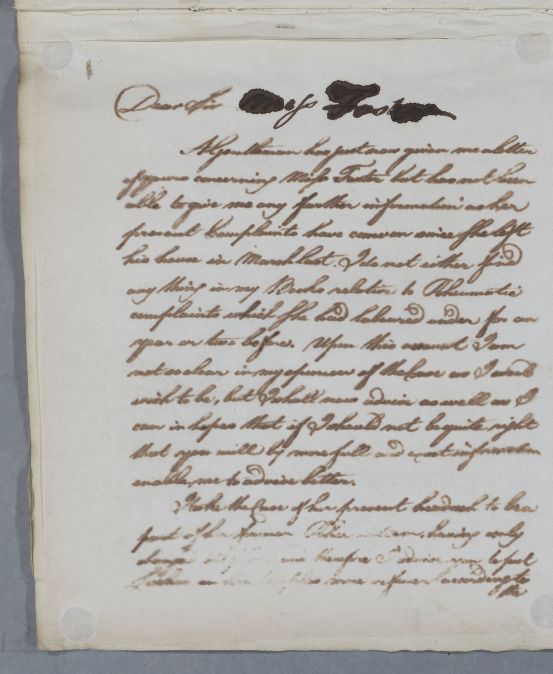 Dear Sir Miss Foster
A Gentleman has just now given me a letter
of yours concerning Miss Foster but has not been
able to give me any further information as her
present Complaints have come on since She left
his house in March last. I do not either find
any thing in my Books relative to Rheumatic
complaints which She had laboured under for an
year or two before. Upon this account I am
not so clear in my opinion of the Case as I would
wish to be, but I shall now advise as well as I
can in hopes that if I should not be quite right
that you will by more full and exact information
enable me to advise better.
I take the Case of her present headach to be a
part of her former having only
change and therefore I advise you to put
some according to
the